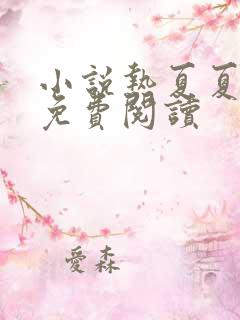 小說熱夏夏
免費閱讀
愛森